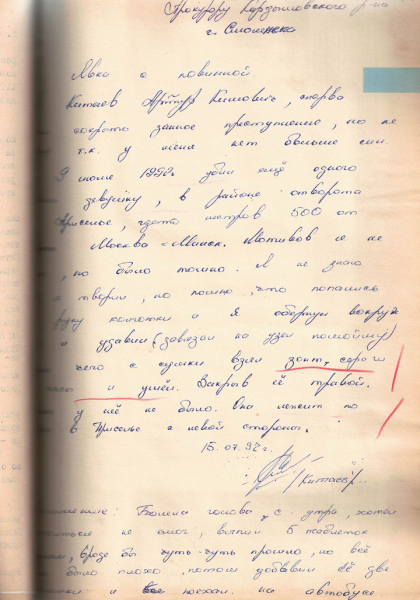 Прокурору Кардымовского р-на
г. Смоленска
Явка с повинной
Китаев Артур
скрыто данное преступление, но не
т.к. у меня нет больше сил.
9 июля 1992г убил ещё одного
девушку, в районе отворота
Приселье, где-то метров 500 от
Москва - Минск. Мотивов я не
, но было точно. Я не знаю
творил, но помню, что попались
руку колготки и я обернул вокруг
и удавил (завязал на узел помойму)
чего с сумки взял зонт, серьги
и ушёл. Закрыв её травой.
у неё не было. Она лежит по
в Приселье с левой стороны.
15.07.92г.
/Китаев/
Болела голова, с утра, хотел
не смог, выпил 5 таблеток
, вроде бы чуть-чуть прошло, но всё
было плохо, потом добавил ещё две
и поехал на автобусе